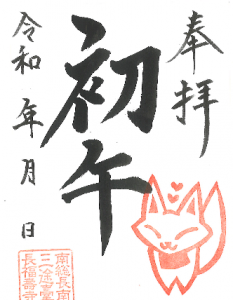 奉拝
初午
令和 年 月 日
南総長南
三途台
長福壽寺